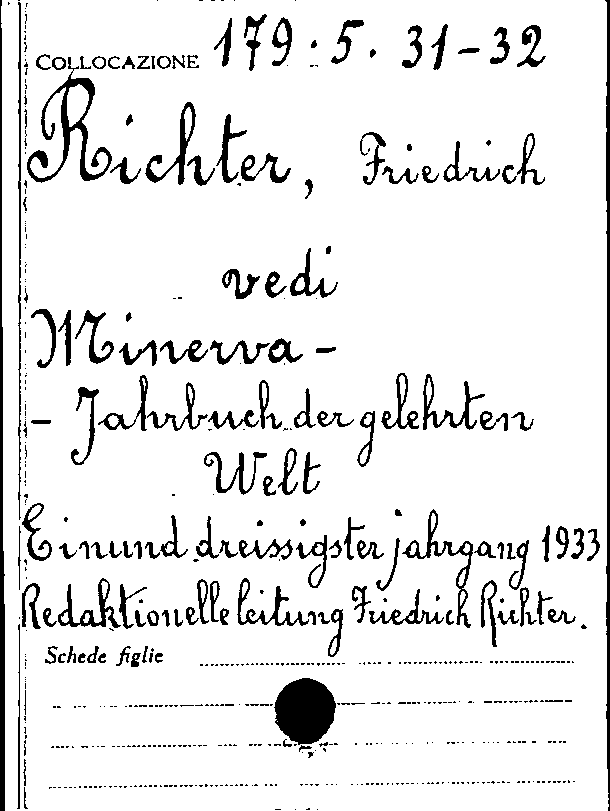 COLLOCAZIONE 179.5.31-32
Richter, Friedrich
vedi
Minerva -
- Jahrbuch der gelehrten
Welt
Einund dreissigster jahrgang 1933
Redaktionelle leitung Friedrich Richter.
Schede figlie